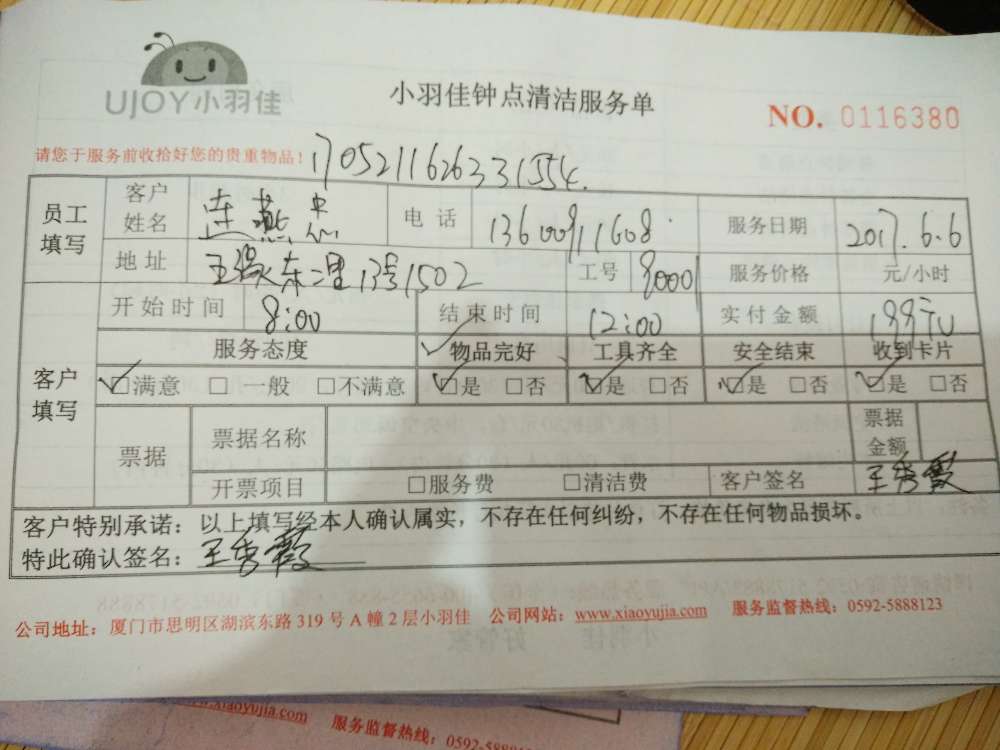 UJOY小羽佳
小羽佳钟点清洁服务单
NO. 0116380
请您于服务前收拾好您的贵重物品!
员工填写 客户姓名 连燕 电话 服务日期 2017.6.6
地址 东二里13号1502 工号 80001 服务价格 元/小时
客户填写 开始时间 8:00 结束时间 12:00 实付金额 199元
服务态度 ✓物品完好 工具齐全 安全结束 收到卡片
✓□满意 □一般 □不满意 ✓□是 □否 ✓□是 □否 ✓□是 □否 ✓□是 □否
票据 票据名称 票据金额
开票项目 □服务费 □清洁费 客户签名 王秀霞
客户特别承诺:以上填写经本人确认属实,不存在任何纠纷,不存在任何物品损坏。
特此确认签名:王秀霞
公司地址:厦门市思明区湖滨东路319号A幢2层小羽佳 公司网站:www.xiaoyujia.com 服务监督热线:0592-5888123
www.xiaoyujia.com 服务监督热线:0592-588812